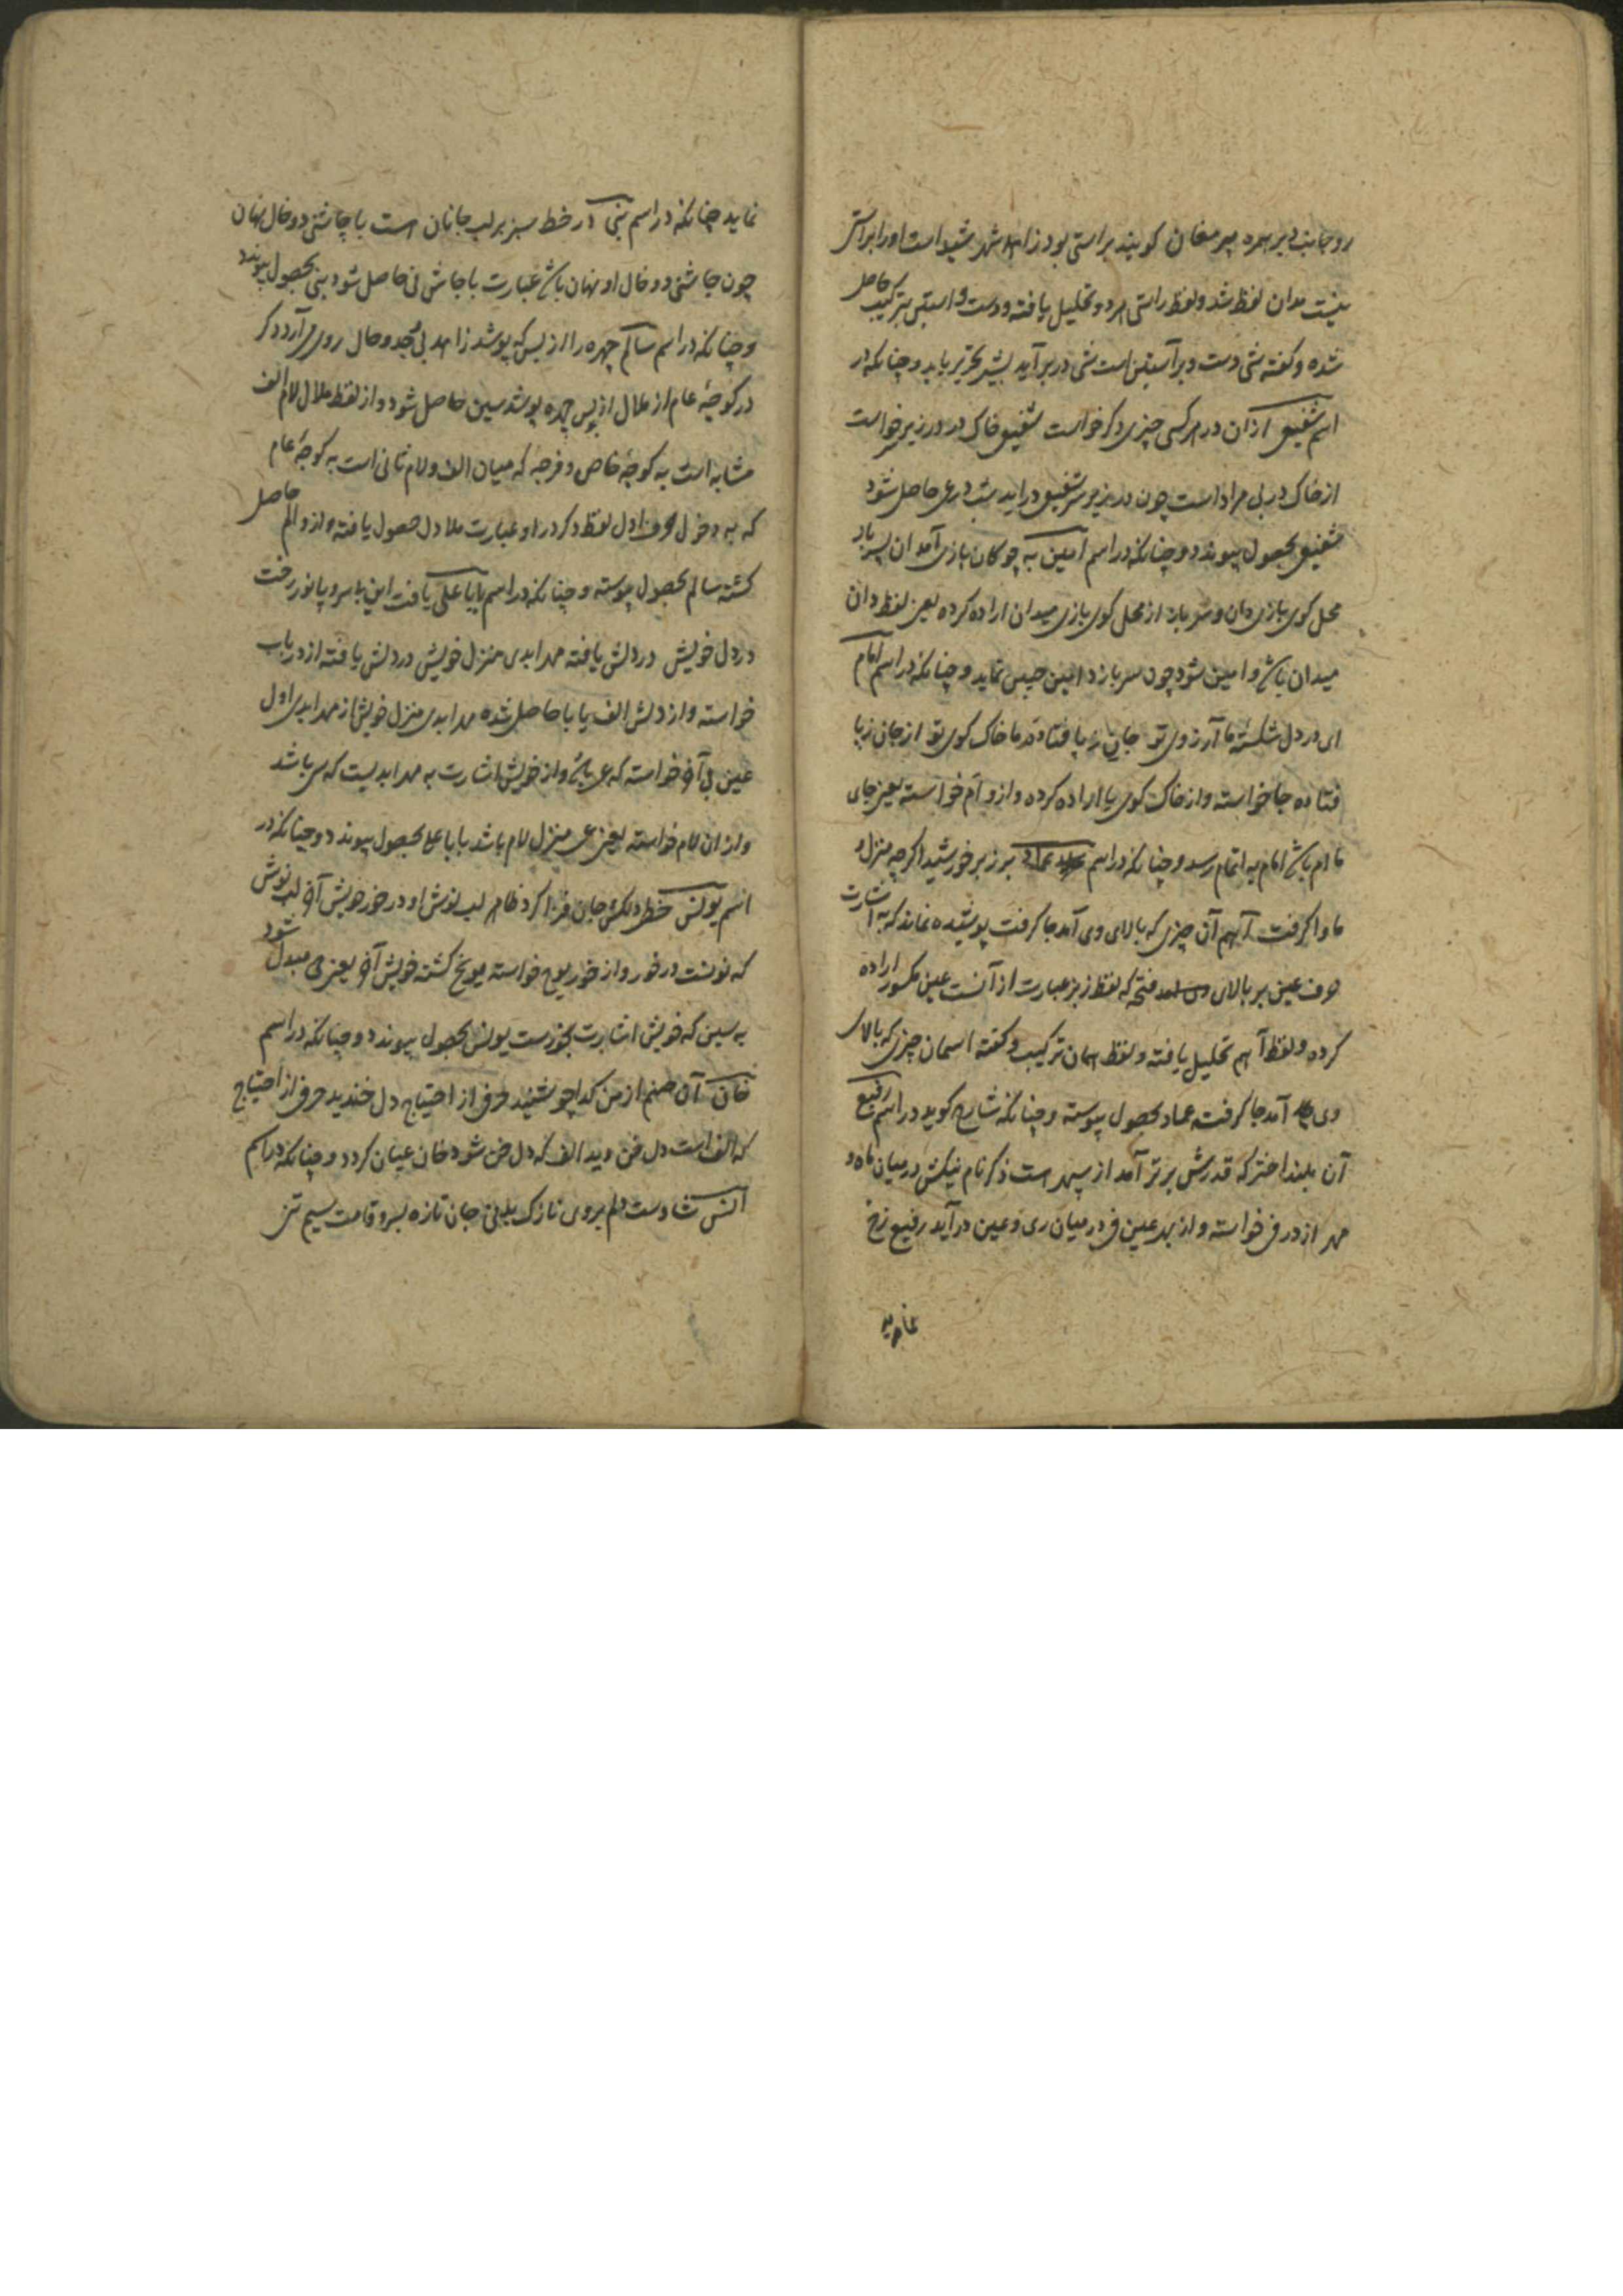 رو جانب دیر مرده پیر مغان کویند براستی بود زاهد شهر شید است اورا براستی
نیست بدان لفظ شد ولفظ راستی هر دو تحلیل یافته ودست و استین ترکیب حاصل
شده وکفته شی دست دبر آستین است شی در بر آید بشیر تحریر یابد وچنانکه در
اسم شفیق ازان در هر کسی چیزی دکر خواست شفیق خاک در در زیر سر خواست
از خاک در بی مراد است چون در زیر سر شفیق در اید حاصل شود
شفیق بحصول پیوندد وچنانکه در اسم امین به چوکان بازی آمد ان سر باز
محل کوی بازی دان وسر باز از محل کوی بازی میدان اراده کرده یعنی لفظ دان
میدان باشد وامین شود چون سر بازد امین جیبی نماید وچنانکه در اسم امام
ای در دل شکستهٔ ما آرزوی تو جای ز پا فتاده ما خاک کوی تو از جای ز پا
فتاده جا خواسته واز خاک کوی یا اراده کرده وازو اَم خواسته یعنی جای
ما ام باشد امام به اتمام رسد وچنانکه در اسم عماد بر زبر خورشید اکرچه منزل و
ماوا کرفت آنهم آن چیزی که بالای وی آمد جا کرفت پوشیده نماند که به اشارت
حرف عین بر بالای فتحه که لفظ زبر عبارت از آنست عین مکسور اراده
کرده ولفظ آنهم تحلیل یافته ولفظ همان ترکیب وکفته اسمان چیزی که بالای
وی آمد جا کرفت عماد بحصول پیوسته وچنانکه شارح کوید در اسم رفیع
آن بلند اختر که قدرش برتر آمد از سپهر است ذکر نام نیکش در میان ماه و
مهر از در فی خواسته واز بهر عین فی در میان ری وعین در آید رفیع رخ
نماید
نماید چنانکه در اسم بنی در خط سبز بر لب جانان است با چاشنی دو خال نهان
چون چاشنی دو خال او نهان باشد عبارت با جاش نی حاصل شود بنی بحصول پیوندد
وچنانکه در اسم سالم چهره را از پس که پوشد زاهد بی وجد وحال روی می آرد دکر
در کوچهٔ عام از ملال از پس چهره پوشد سین حاصل شود واز لفظ ملال لام الف
مشابه است به کوچهٔ خاص وفرجه که میان الف ولام ثانی است به کوچهٔ عام
که به دخول حرف اول لفظ دکر در او عبارت ملا دل حصول یافته وازو الم حاصل
کشته سالم بحصول پیوسته وچنانکه در اسم بابا علی یافت این با سر و پا نور رخت
در دل خویش در دلش یافته مهر ابدی منزل خویش در دلش یافته از در باب
خواسته واز دلش الف با با حاصل شده مهر ابدی منزل خویش از مهر ابدی اول
عین بی آخر خواسته که عی باشد واز خویش اشارت به مهر ابدیست که سی باشد
واز ان لام خواسته یعنی عی منزل لام باشد بابا علی بحصول پیوندد وچنانکه در
اسم یونس خط دلکش جان فزا کرد ظاهر لب نوش او در خور خویش آخر لب نوش
که نونست در خور واز خور یوح خواسته یونح کشته خویش آخر یعنی حی مبدل شود
به سین که خویش اشارت بخورست یونس بحصول پیوندد وچنانکه در اسم
خان آن صنم از من کدا چو شنید حرفی از احتیاج دل خندید حرفی از احتیاج
که الف است دل خن دید الف که دل خن شود خان عیان کردد وچنانکه در اسم
انس شادست دلم بروی نازک بدنی جان تازه بسرو قامت سیم تنی